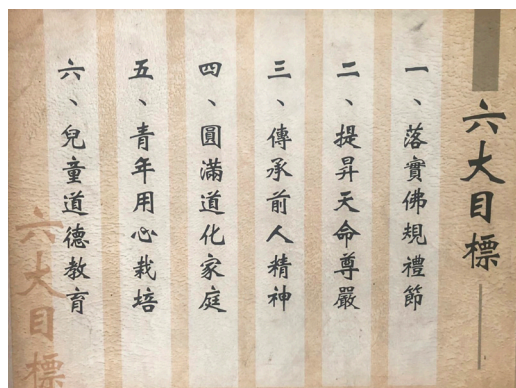 六大目標
一、落實佛規禮節
二、提昇天命尊嚴
三、傳承前人精神
四、圓滿道化家庭
五、青年用心栽培
六、兒童道德教育
六大目標